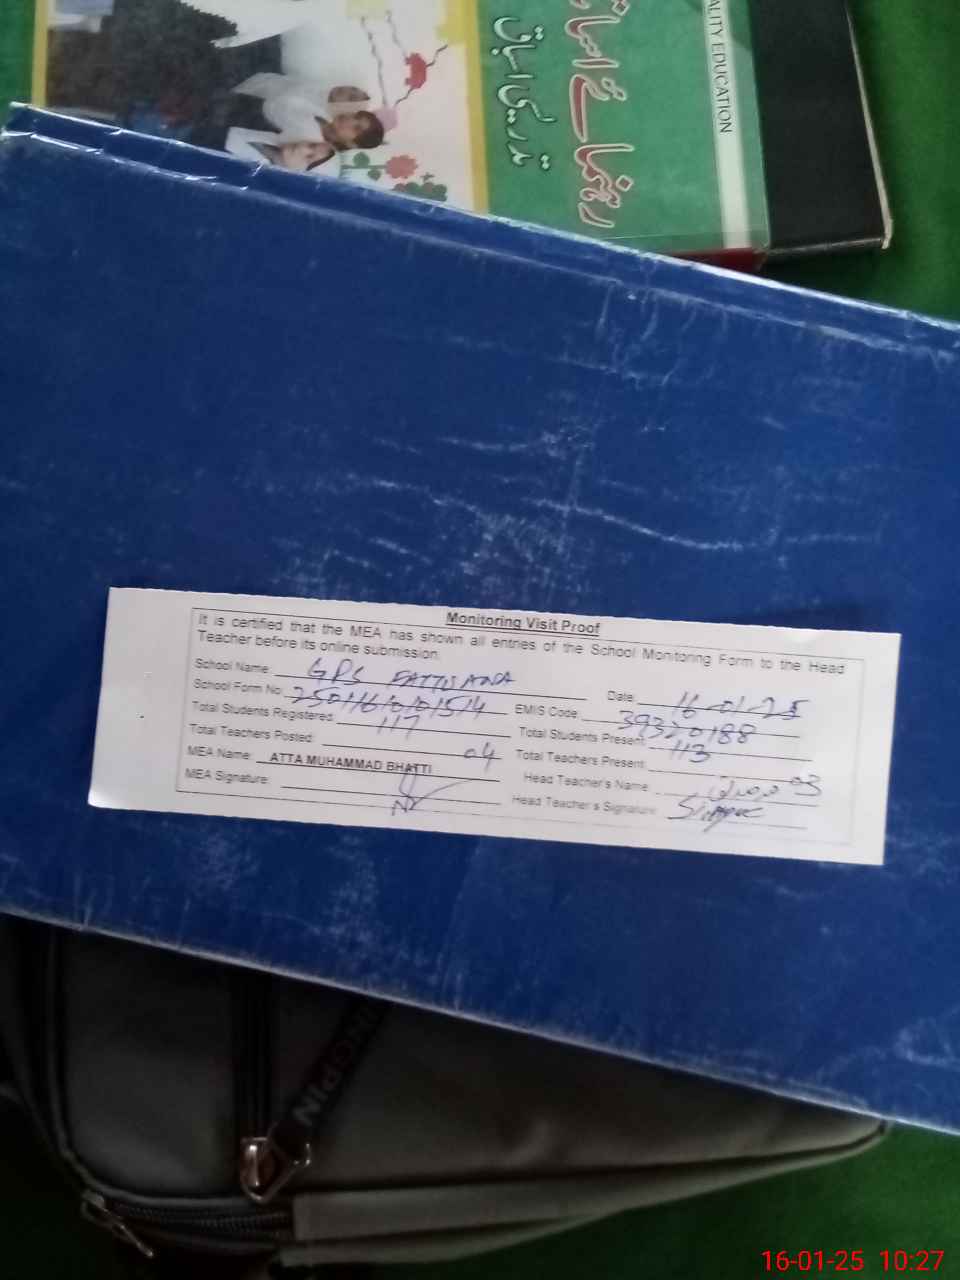 ALITY EDUCATION
رہنمائے اساتذہ
تدریسی اسباق
Monitoring Visit Proof
It is certified that the MEA has shown all entries of the School Monitoring Form to the Head
Teacher before its online submission.
School Name: GPS Date: 16-01-25
School Form No: EMIS Code: 39320188
Total Students Registered: 117 Total Students Present: 113
Total Teachers Posted: 04 Total Teachers Present: 03
MEA Name: ATTA MUHAMMAD BHATTI Head Teacher's Name:
MEA Signature: Head Teacher's Signature:
16-01-25 10:27